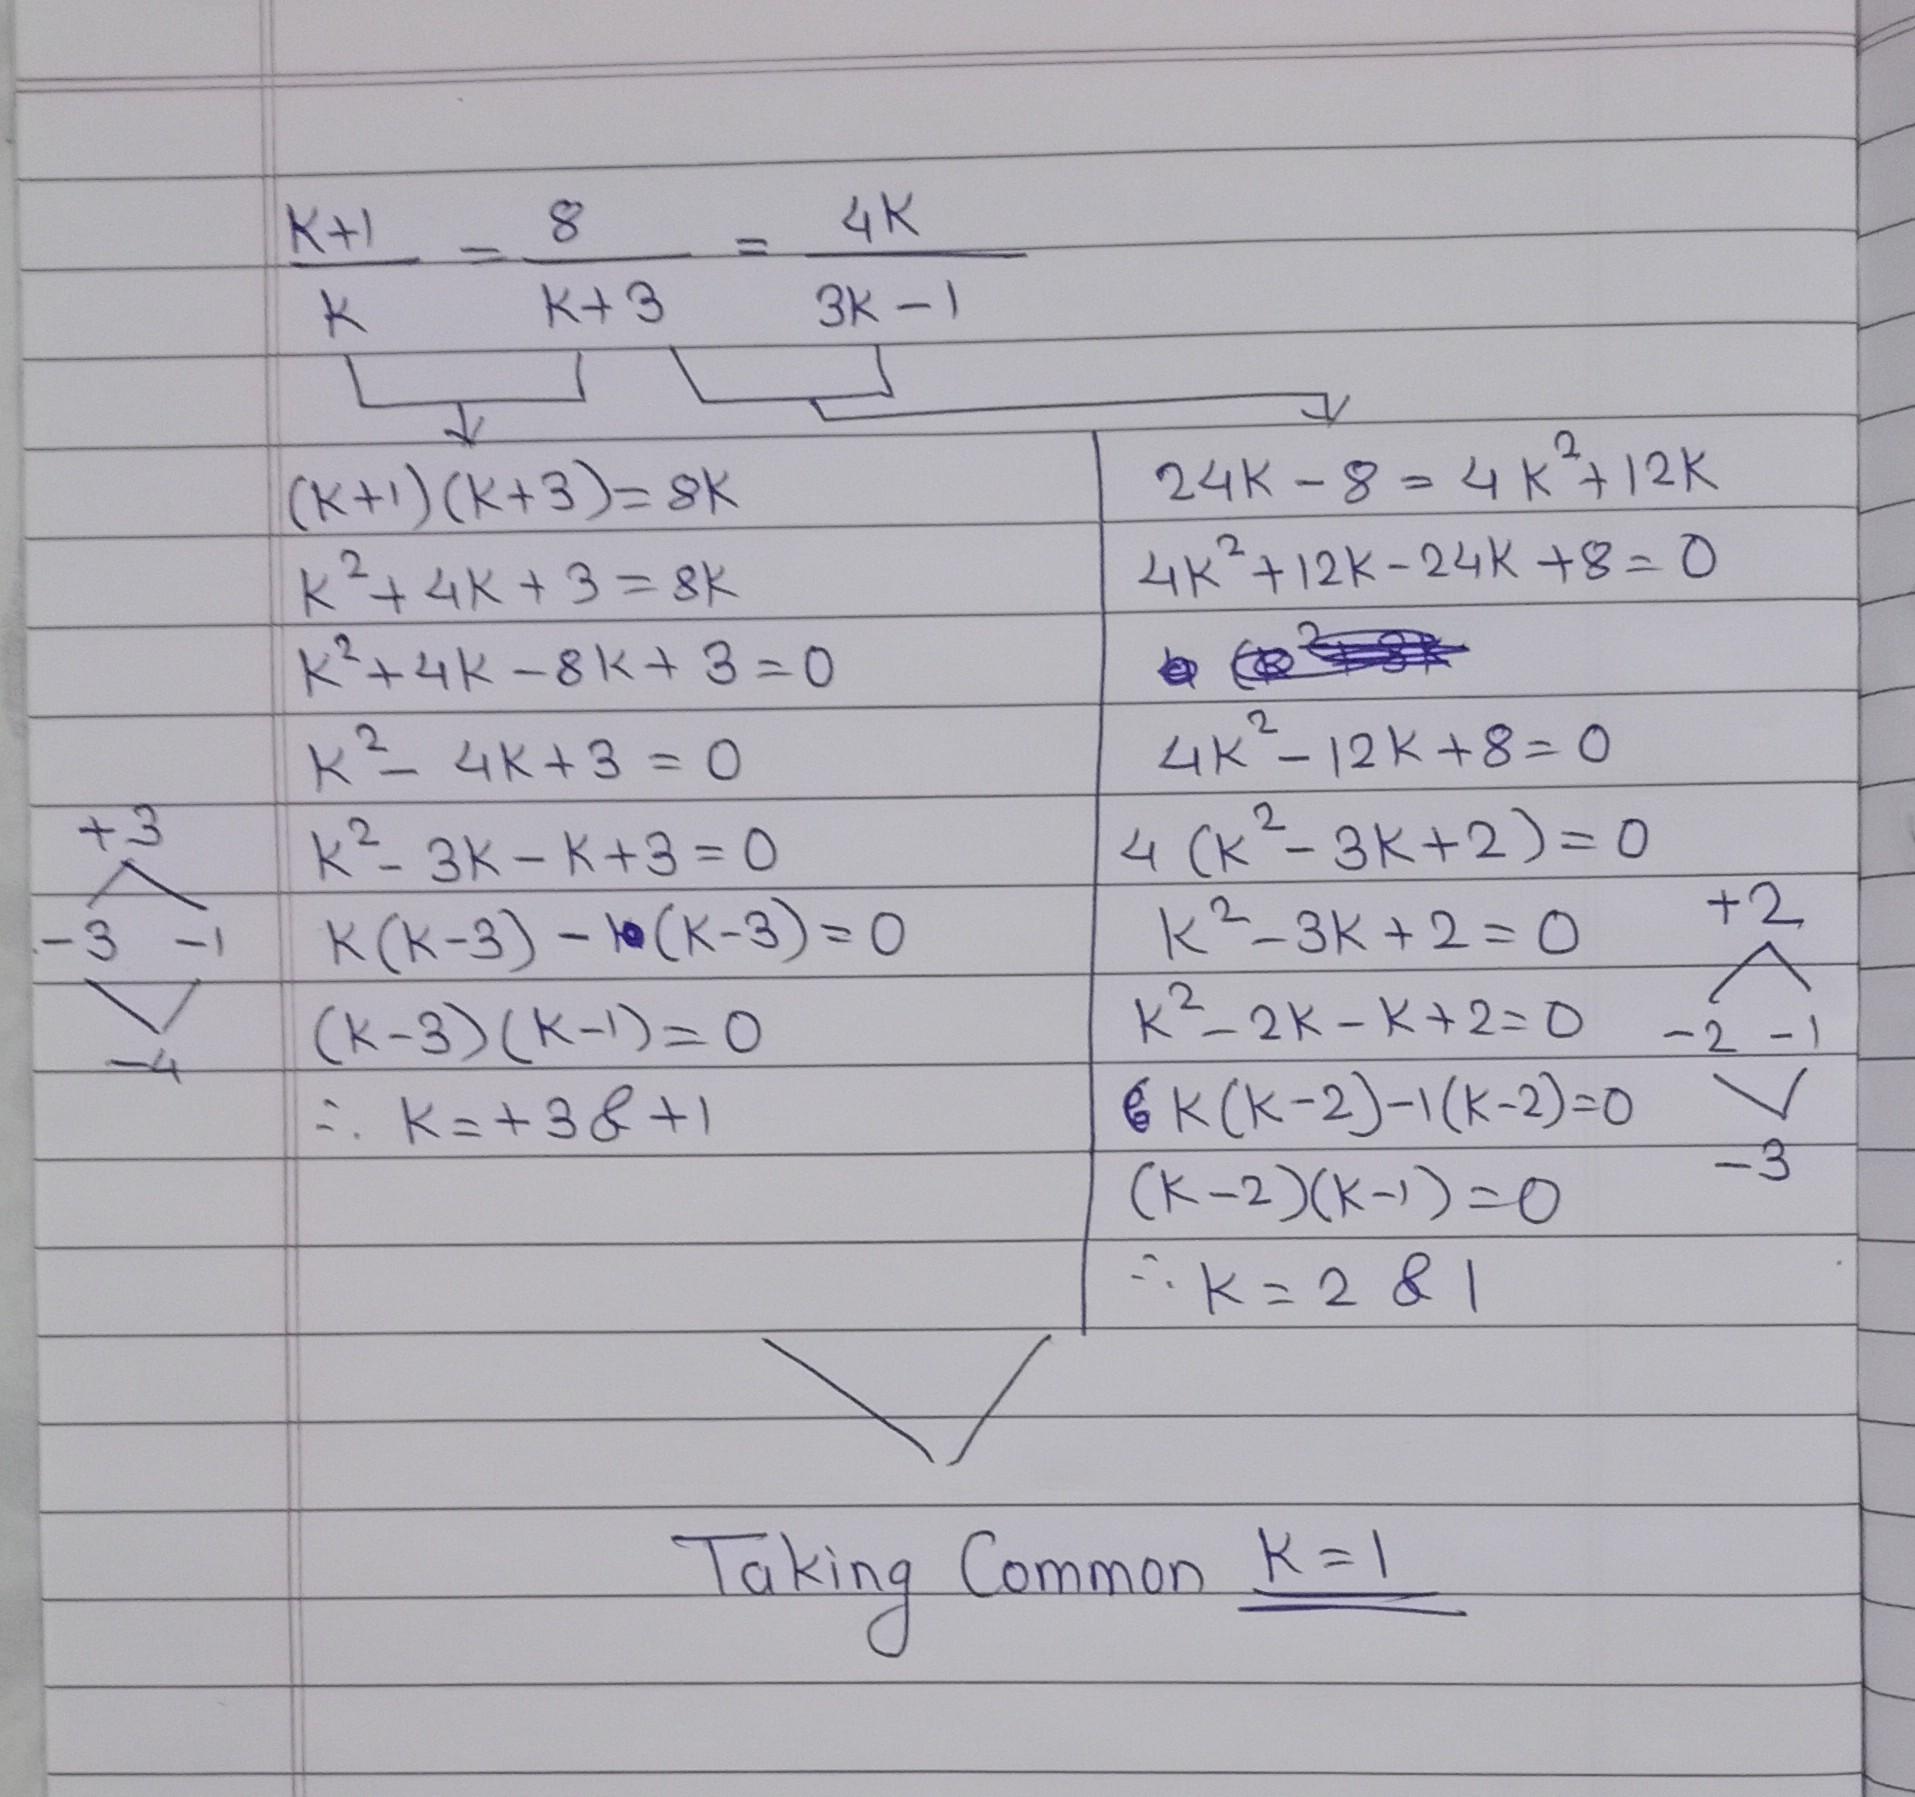 K+1 = 8 = 4K
K K+3 3K-1
(K+1)(K+3)=8K
K²+4K+3=8K
K²+4K-8K+3=0
K²-4K+3=0
+3
K²-3K-K+3=0
-3 -1
K(K-3)-1(K-3)=0
(K-3)(K-1)=0
-4
∴ K=+3&+1
24K-8=4K²+12K
4K²+12K-24K+8=0
4K²-12K+8=0
4(K²-3K+2)=0
K²-3K+2=0
+2
K²-2K-K+2=0
-2 -1
K(K-2)-1(K-2)=0
-3
(K-2)(K-1)=0
∴ K=2 & 1
Taking Common K=1